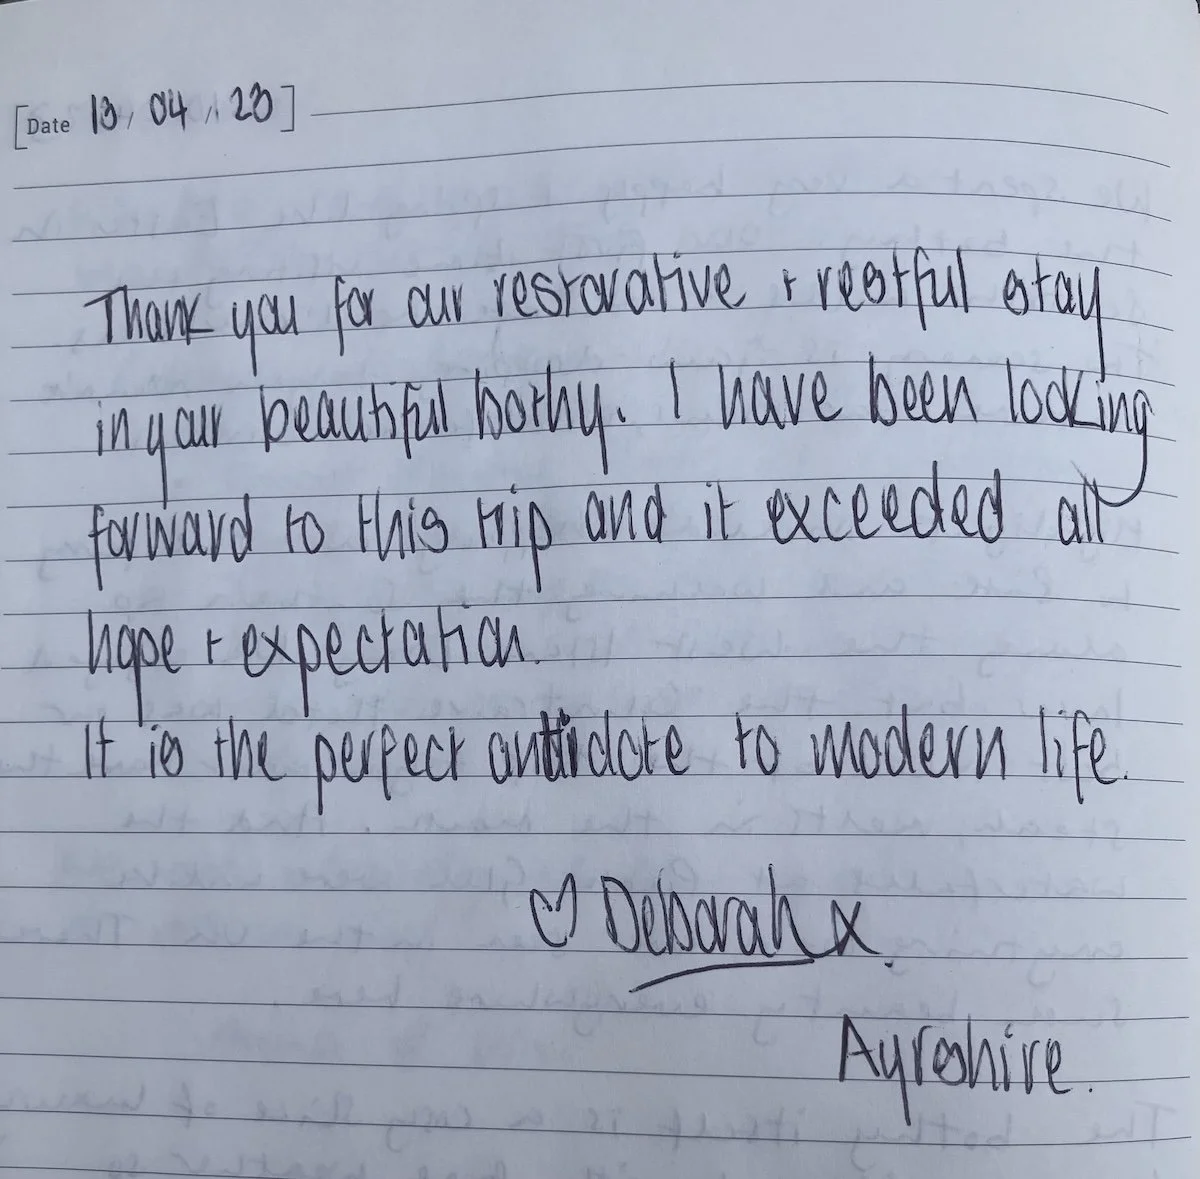 [Date 13, 04, 23]
Thank you for our restorative + restful stay
in your beautiful bothy. I have been looking
forward to this trip and it exceeded all
hope + expectation.
It is the perfect antidote to modern life.
♡ Deborah x.
Ayrshire.